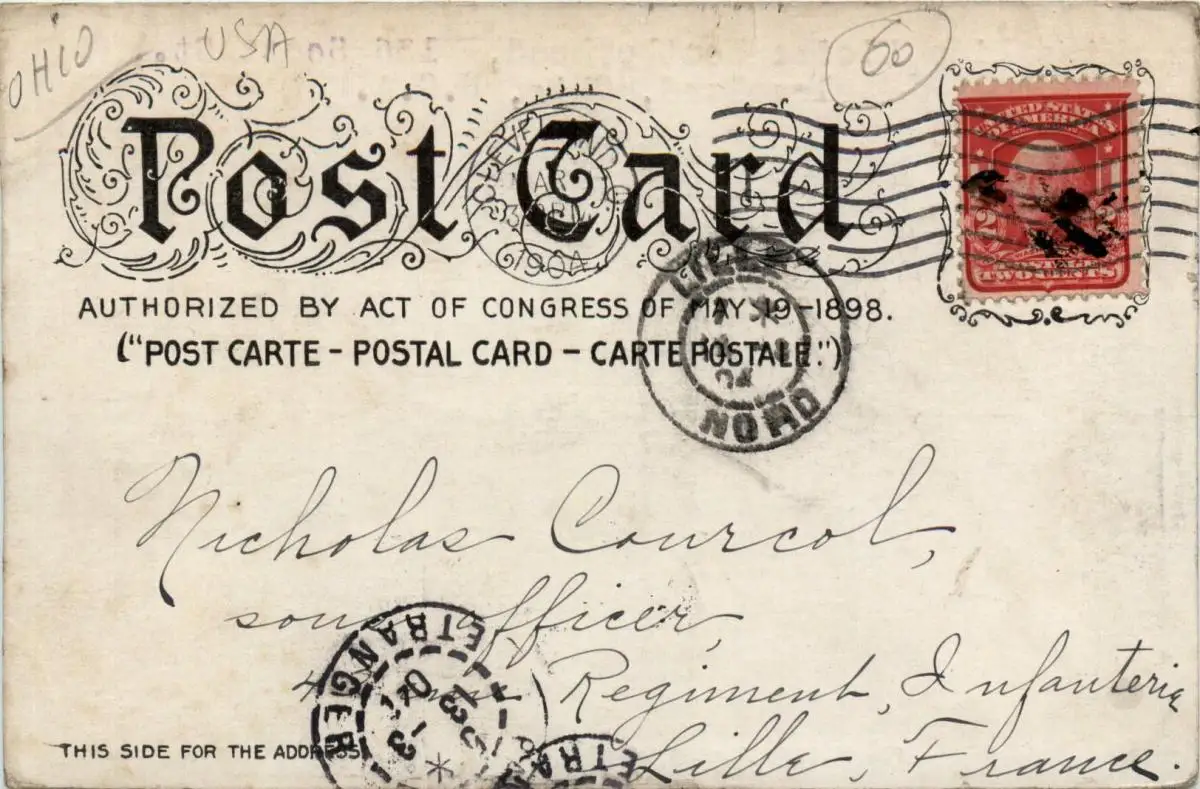 OHIO USA
60
Post Card
CLEVELAND
MAR
1904
UNITED STATES
OF AMERICA
2 2
TWO CENTS
AUTHORIZED BY ACT OF CONGRESS OF MAY 19-1898.
("POST CARTE - POSTAL CARD - CARTE POSTALE.")
LILLE
04
NORD
Nicholas Courcol,
sous officer,
Regiment, Infanterie
Lille, France.
ETRANGER
04
THIS SIDE FOR THE ADDRESS.
ETRAN